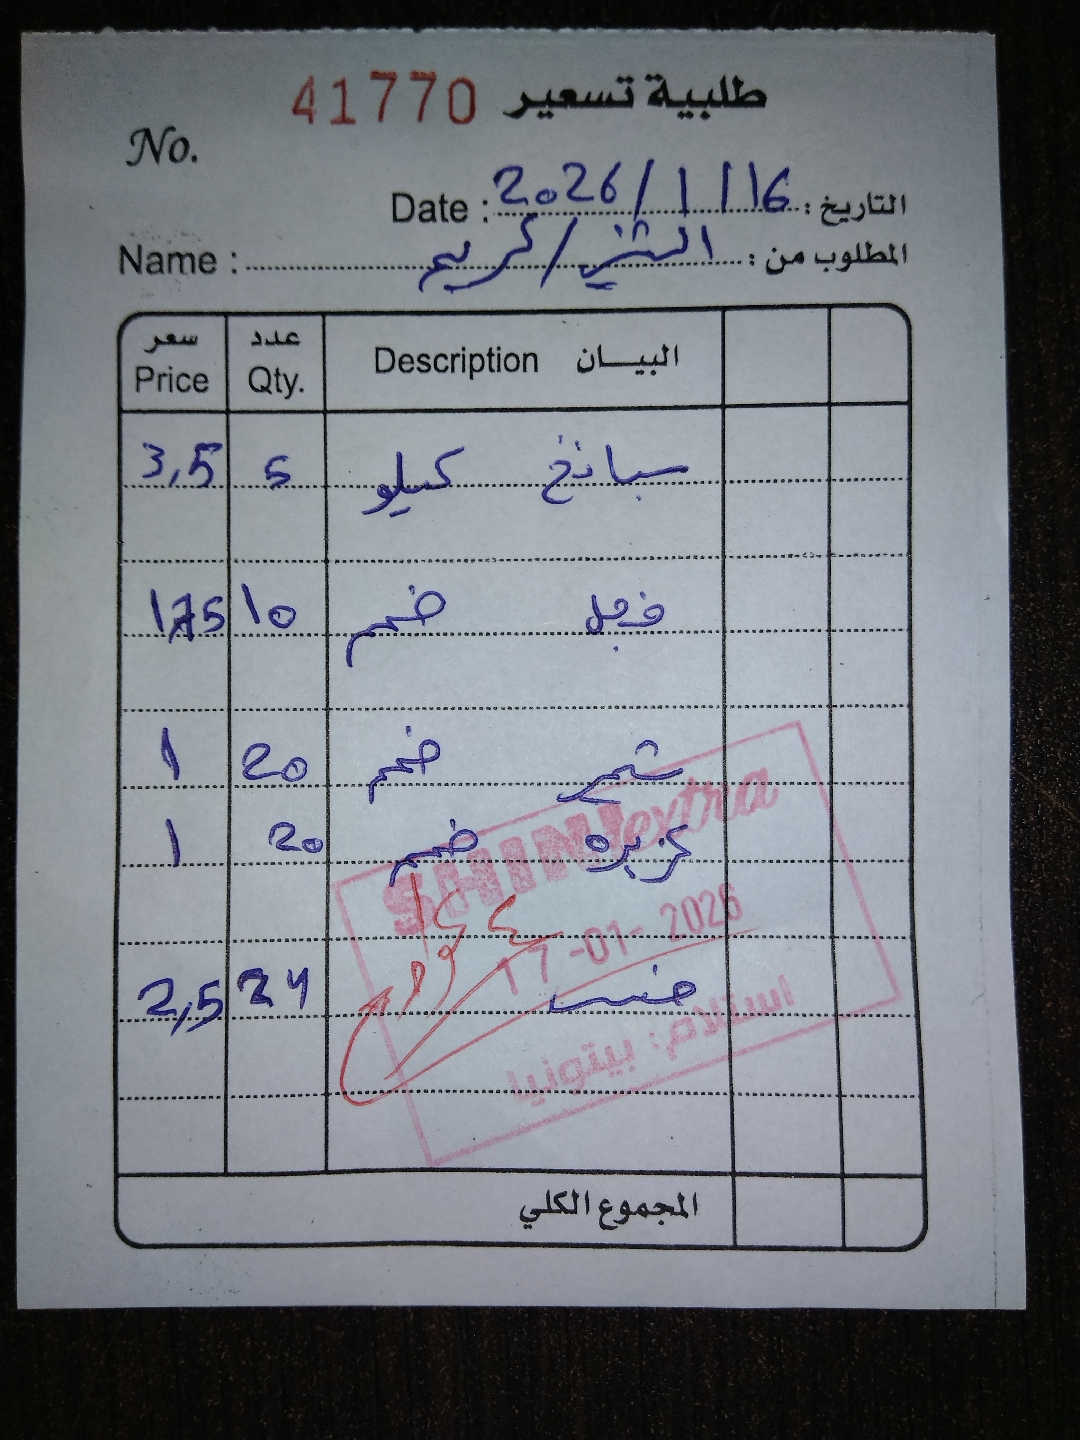 طلبية تسعير 41770
No.
التاريخ : 2026/1/16 : Date
المطلوب من : / كريم : Name
البيــان Description عدد Qty. سعر Price
سبانخ كيلو 5 3,5
فجل ضمم 10 1,75
شمر ضمم 20 1
كزبره ضمم 20 1
خس 24 2,5
SHINI extra
17-01-2026
استلام: بيتونيا
المجموع الكلي